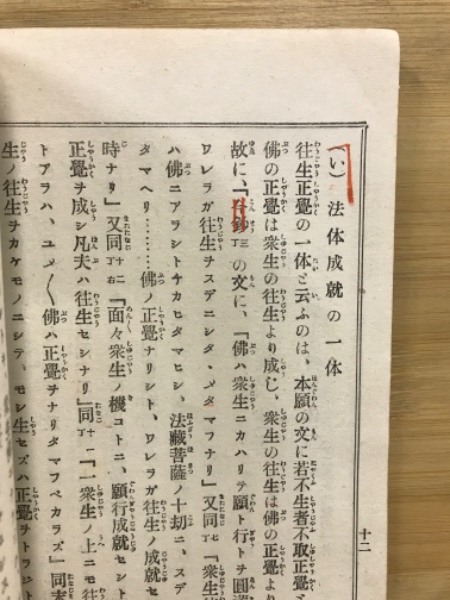 (い) 法体成就の一体
往生正覺の一体と云ふのは、本願の文に若不生者不取正覺と
佛の正覺は衆生の往生より成じ、衆生の往生は佛の正覺より
故に、「今鈔三丁の文に、「佛ハ衆生ニカハリテ願ト行トヲ圓滿
ワレラガ往生ヲスデニシタヽメタマフナリ」又同七丁「衆生
ハ佛ニアラジトチカヒタマヒシ、法藏菩薩ノ十劫ニ、スデ
タマヘリ………佛ノ正覺ナリシト、ワレラガ往生ノ成就セ
時ナリ」又同十二丁右「面々衆生ノ機コトニ、願行成就セシト
正覺ヲ成シ凡夫ハ往生セシナリ」同十丁「一衆生ノ上ニモ往
トアラハ、ユメ〱佛ハ正覺ヲナリタマフベカラズ」同末
生ノ往生ヲカケモノニシテ、モシ生セズハ正覺ヲトラジト
十二